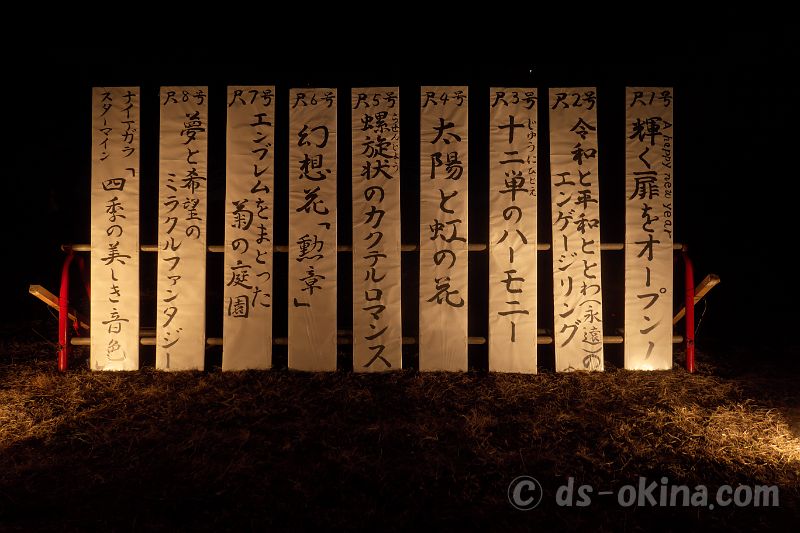 尺1号
A happy new year
輝く扉をオープン！
尺2号
令和と平和ととわ(永遠)の
エンゲージリング
尺3号
じゅうにひとえ
十二単のハーモニー
尺4号
太陽と虹の花
尺5号
らせんじょう
螺旋状のカクテルロマンス
尺6号
幻想花「勲章」
尺7号
エンブレムをまどった
菊の庭園
尺8号
夢と希望の
ミラクルファンタジー
ナイアガラ
スターマイン
「四季の美しき音色」
© ds-okina.com